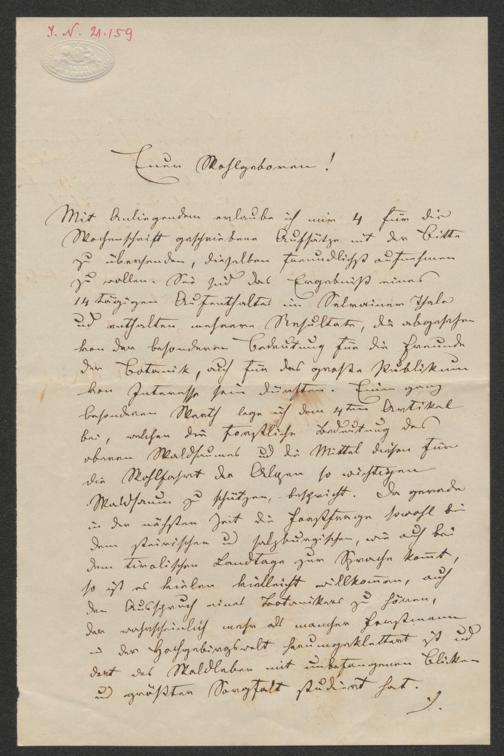 J. N. 21.159
Euer Wohlgeboren!
Mit Anliegendem erlaube ich mir 4 für die
Wochenschrift geschriebene Aufsätze mit der Bitte
zu übersenden, dieselben freundlichst aufnehmen
zu wollen. Sie sind das Ergebniß eines
14 tägigen Aufenthaltes im Selrainer Thale
und enthalten mehrere Resultate, die abgesehen
von der besonderen Bedeutung für die Freunde
der Botanik, auch für das große Publikum
von Interesse sein dürften. Einen ganz
besonderen Werth lege ich dem 4ten Artikel
bei, welcher die forstliche Bedeutung des
oberen Waldsaumes und die Mittel diesen für
die Wohlfahrt der Alpen so wichtigen
Waldsaum zu schützen, bespricht. Da gerade
in der nächsten Zeit die Forstfrage sowohl bei
dem steirischen u salzburgischen, wie auch bei
dem tirolischen Landtage zur Sprache kommt,
so ist es vielen vielleicht willkommen, auch
den Ausspruch eines Botanikers zu hören,
der wahrscheinlich mehr als mancher Forstmann
in der Hochgebirgswelt herumgeklettert ist und
dort das Waldleben mit unbefangenen Blicken
und größten Sorgfalt studiert hat.